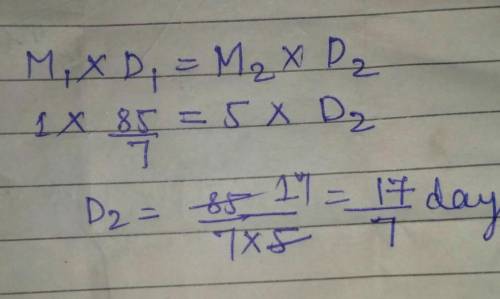 M₁ × D₁ = M₂ × D₂
1 × 85/7 = 5 × D₂
D₂ = 85 17 / 7 × 5 = 17/7 day